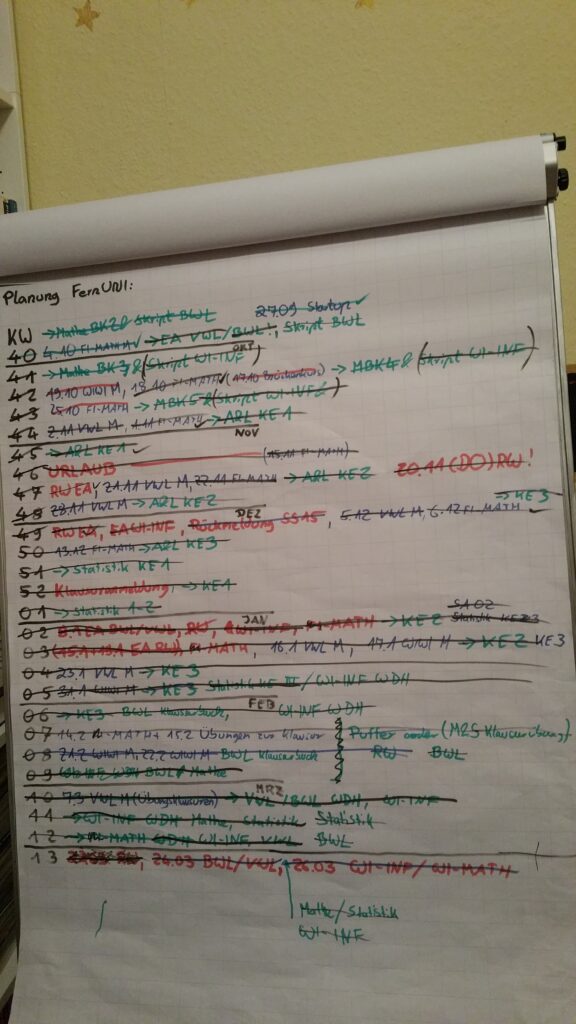 Planung FernUNI:
KW → Mathe BK2 & Skript BWL 27.09 Startup ✓
40 4.10 FI-MATH ✓ → EA VWL/BWL!, Skript BWL
OKT
41 → Mathe BK3 & (Skript WI-INF)
42 19.10 WIWI M, 18.10 FI-MATH ✓ (17.10 ) → MBK4 & (Skript WI-INF)
43 25.10 FI-MATH → MBK5 & (Skript WI-INF)
44 2.11 VWL M, 1.11 FI-MATH ✓ → ARL KE1
NOV
45 → ARL KE1 ✓
46 URLAUB (15.11 FI-MATH)
47 RW EA, 21.11 VWL M, 22.11 FI-MATH → ARL KE2 20.11 (DO) RW!
48 28.11 VWL M → ARL KE2 → KE3
DEZ
49 RW EA, EA WI-INF, Rückmeldung SS15, 5.12 VWL M, 6.12 FI-MATH ✓
50 13.12 FI-MATH → ARL KE3
51 → Statistik KE1
52 Klausuranmeldung, → KE1
01 → Statistik 1-2
JAN
02 8.1 EA BWL/VWL, RW, WI-INF, FI-MATH → KE2 Statistik KE23
03 (15.1+ EA RW) FI-MATH, 16.1 VWL M, 17.1 WIWI M → KE2 KE3
04 23.1 VWL M → KE3
05 31.1 WIWI M → KE3 Statistik KE III / WI-INF WDH
FEB
06 → KE3 BWL Klausurbuch, WI-INF WDH
07 14.2 FI-MATH + 15.2 Übungen zur Klausur Puffer (M2S Klausurübung)
08 21.2 WIWI M, 22.2 WIWI M BWL Klausurbuch RW BWL
09 WI-INF WDH BWL Mathe
MRZ
10 7.3 VWL M (Übungsklausuren) → VWL/BWL WDH, WI-INF
11 → WI-INF WDH Mathe, Statistik Statistik
12 → MATH WDH WI-INF VWL BWL
13 RW, 26.03 BWL/VWL, 26.03 WI-INF/WI-MATH
Mathe/Statistik
WI-INF